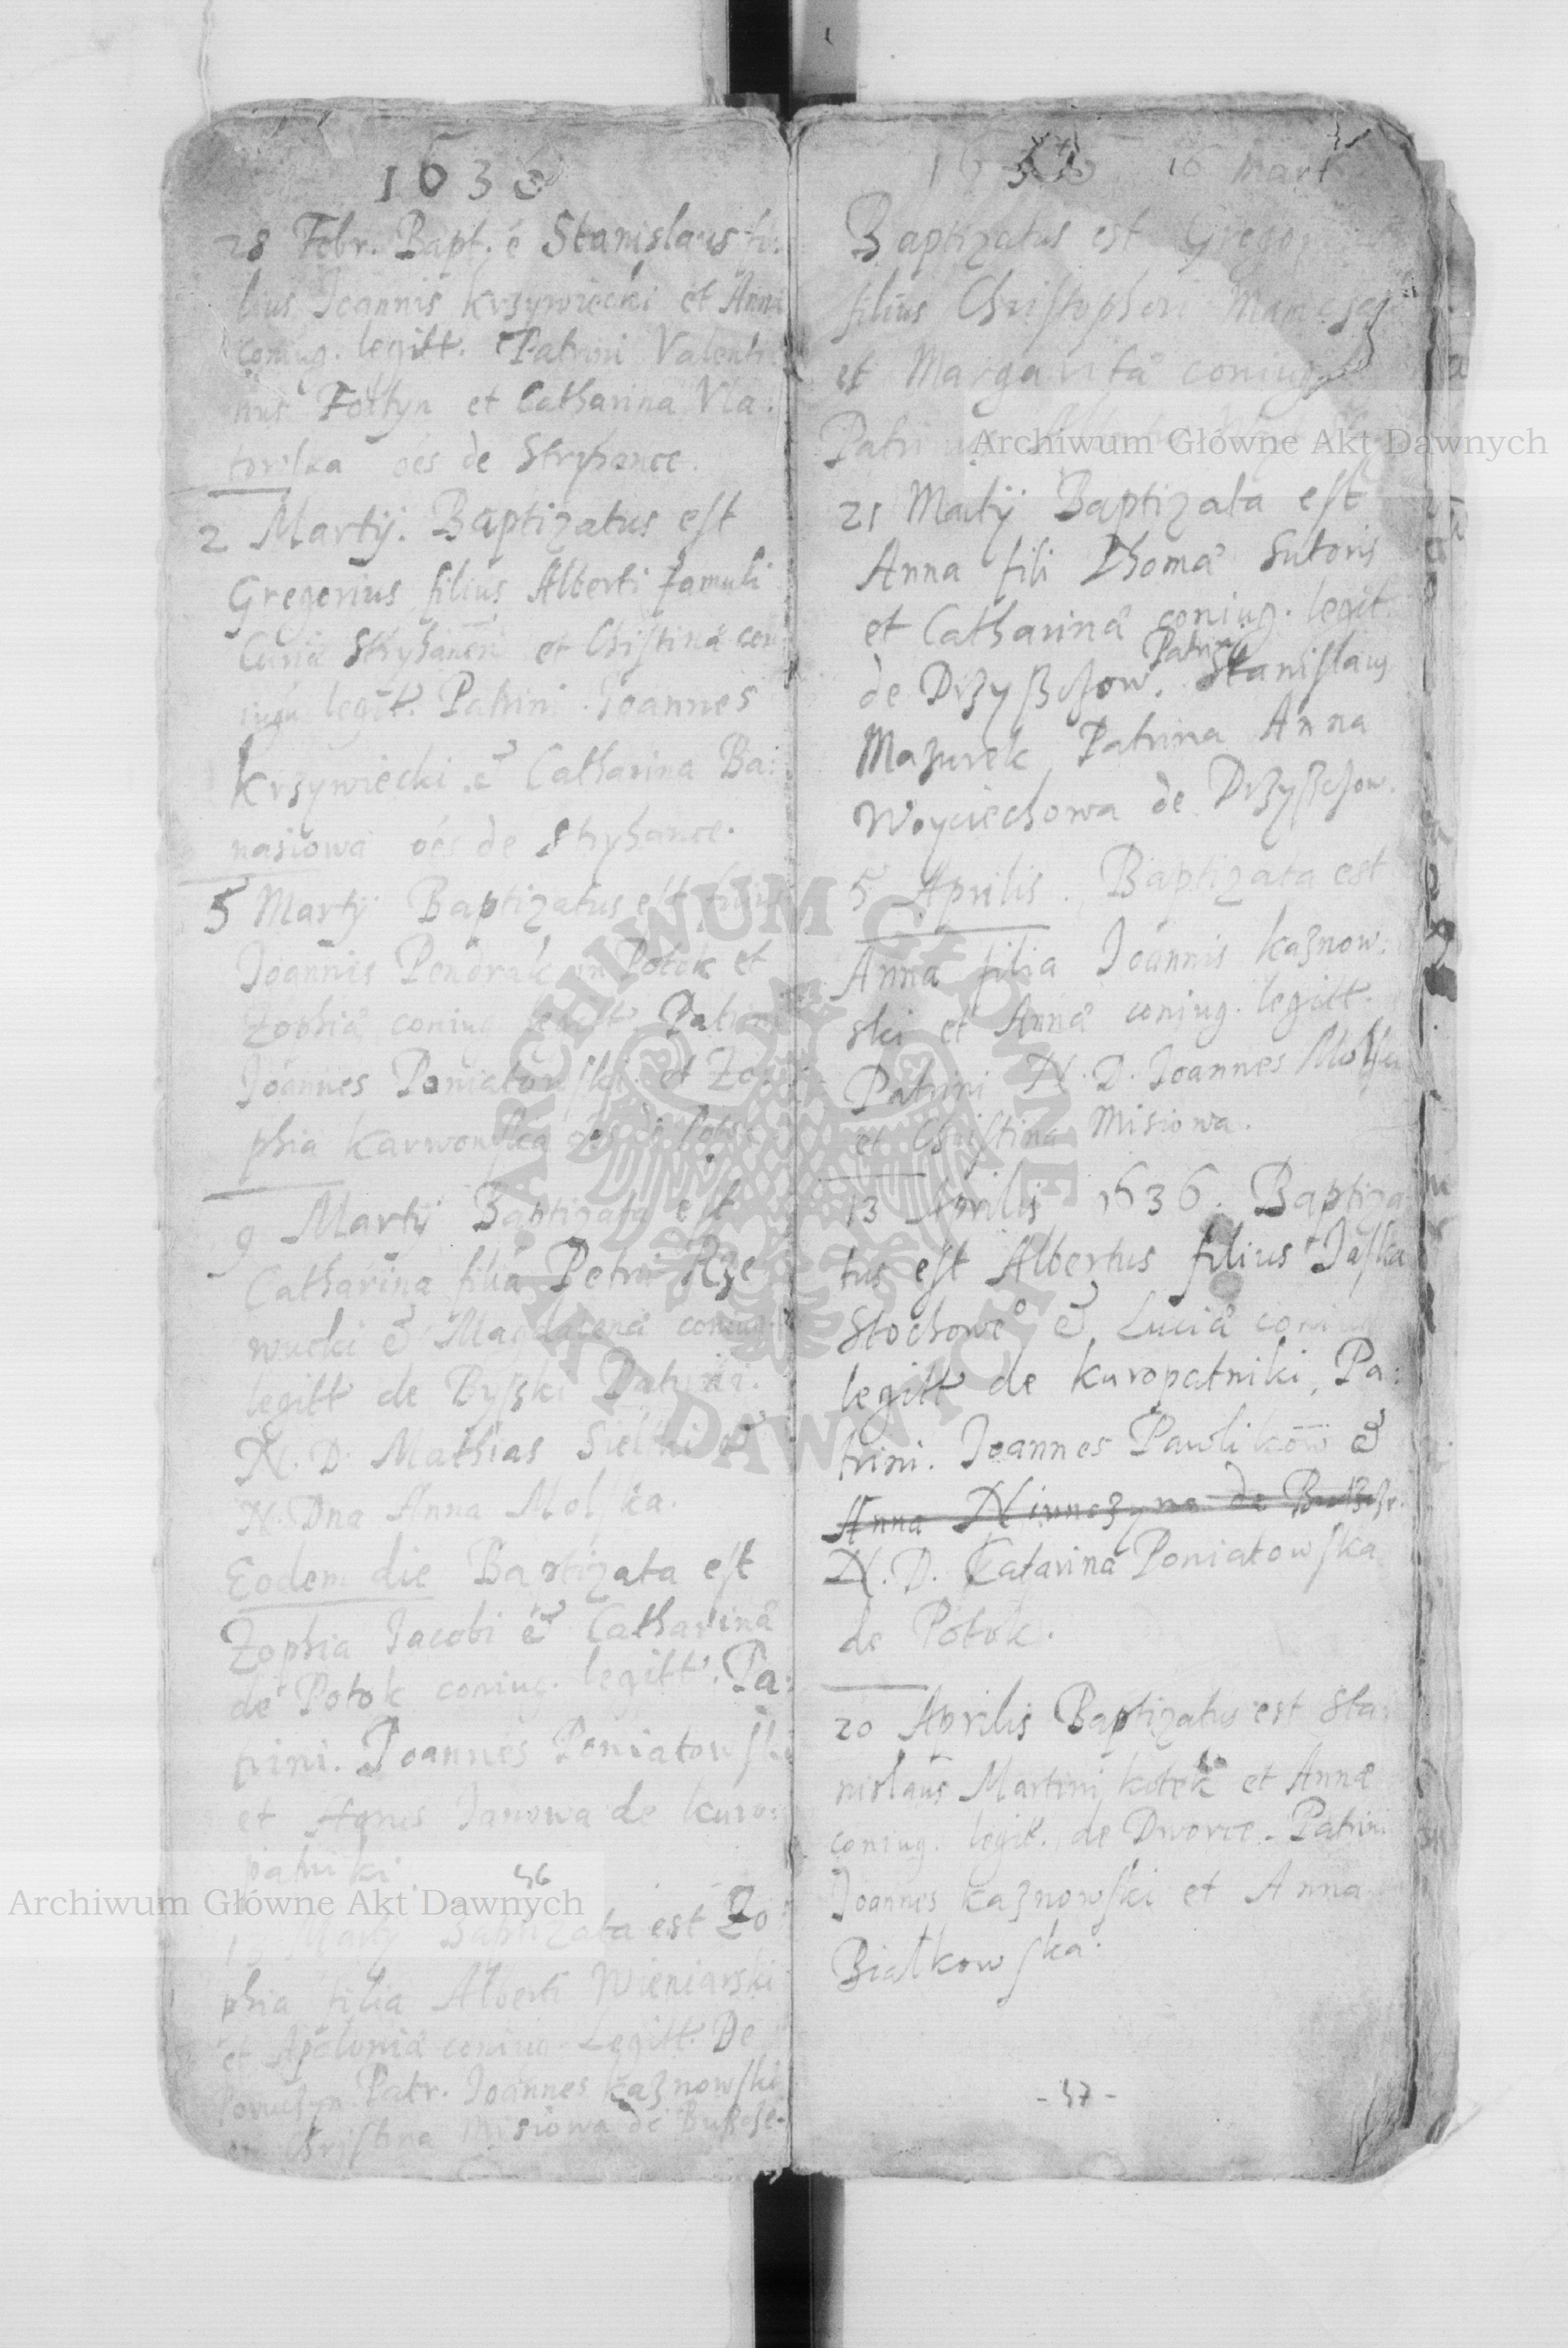 1636
28 Febr. Bapt. ẽ Stanislaus fi:
lius Joannis Krzywiecki et Anna
coniug. legitt. Patrini Valenti
nus Foltyn et Catharina Vla:
towska oẽs de Stryhance.
2 Martij. Baptizatus est
Gregorius filius Alberti famuli
Curiæ Stryhanen et Christinæ con
iugu legit. Patrini Joannes
Krzywiecki & Catharina Ba:
nasiowa oẽs de Stryhance.
5 Martij Baptizatus est filius
Joannis Pendrak in Potok et
Zophiæ coniug legitt. Patrini
Joannes Poniatowski et Zo:
phia Karwowska oẽs de Potok
9 Martij Baptizata est
Catharina filia Petri Rze
wucki & Magdalenæ coniug.
legitt de Byszki Patrini.
N. D. Mathias Sielski &
N. Dna Anna Molska.
Eodem die Baptizata est
Zophia Jacobi & Catharinæ
de Potok coniug. legitt. Pa:
trini. Joannes Poniatowski
et Agnes Janowa de Kuro:
patniki
36
Martij Baptizata est Zo
phia filia Alberti Wieniarski
et Apoloniæ coniug Legitt. De
Patr. Joannes Kaznowski
Christina Misiowa de
16 Mart
Baptizatus est Gregorius
filius Christophori
et Margaritæ coniug
Patri
21 Martij Baptizata est
Anna fili Thomæ Sutoris
et Catharinæ coniug. legit.
Patrin
de Drzyszczow. Stanislaus
Mazurek Patrina Anna
Woyciechowa de Drzyszczow.
5 Aprilis. Baptizata est
Anna filia Joannis Kaznow:
ski et Annæ coniug. legitt.
Patrini N. D. Joannes Molski
et Christina Misiowa.
13 Aprilis 1636. Baptiza
tus est Albertus filius Jaska
Stochowe & Luciæ coniug
legitt de Kuropatniki, Pa:
trini. Joannes Pawlikow &
Anna
N. D. Catarina Poniatowska
de Potok.
20 Aprilis Baptizatus est Sta
nislaus Martini et Annæ
coniug. legit. de Dworce. Patrini
Joannes Kaznowski et Anna
Białkowska.
-37-
Archiwum Główne Akt Dawnych
Archiwum Główne Akt Dawnych
ARCHIWUM GŁÓWNE AKT DAWNYCH